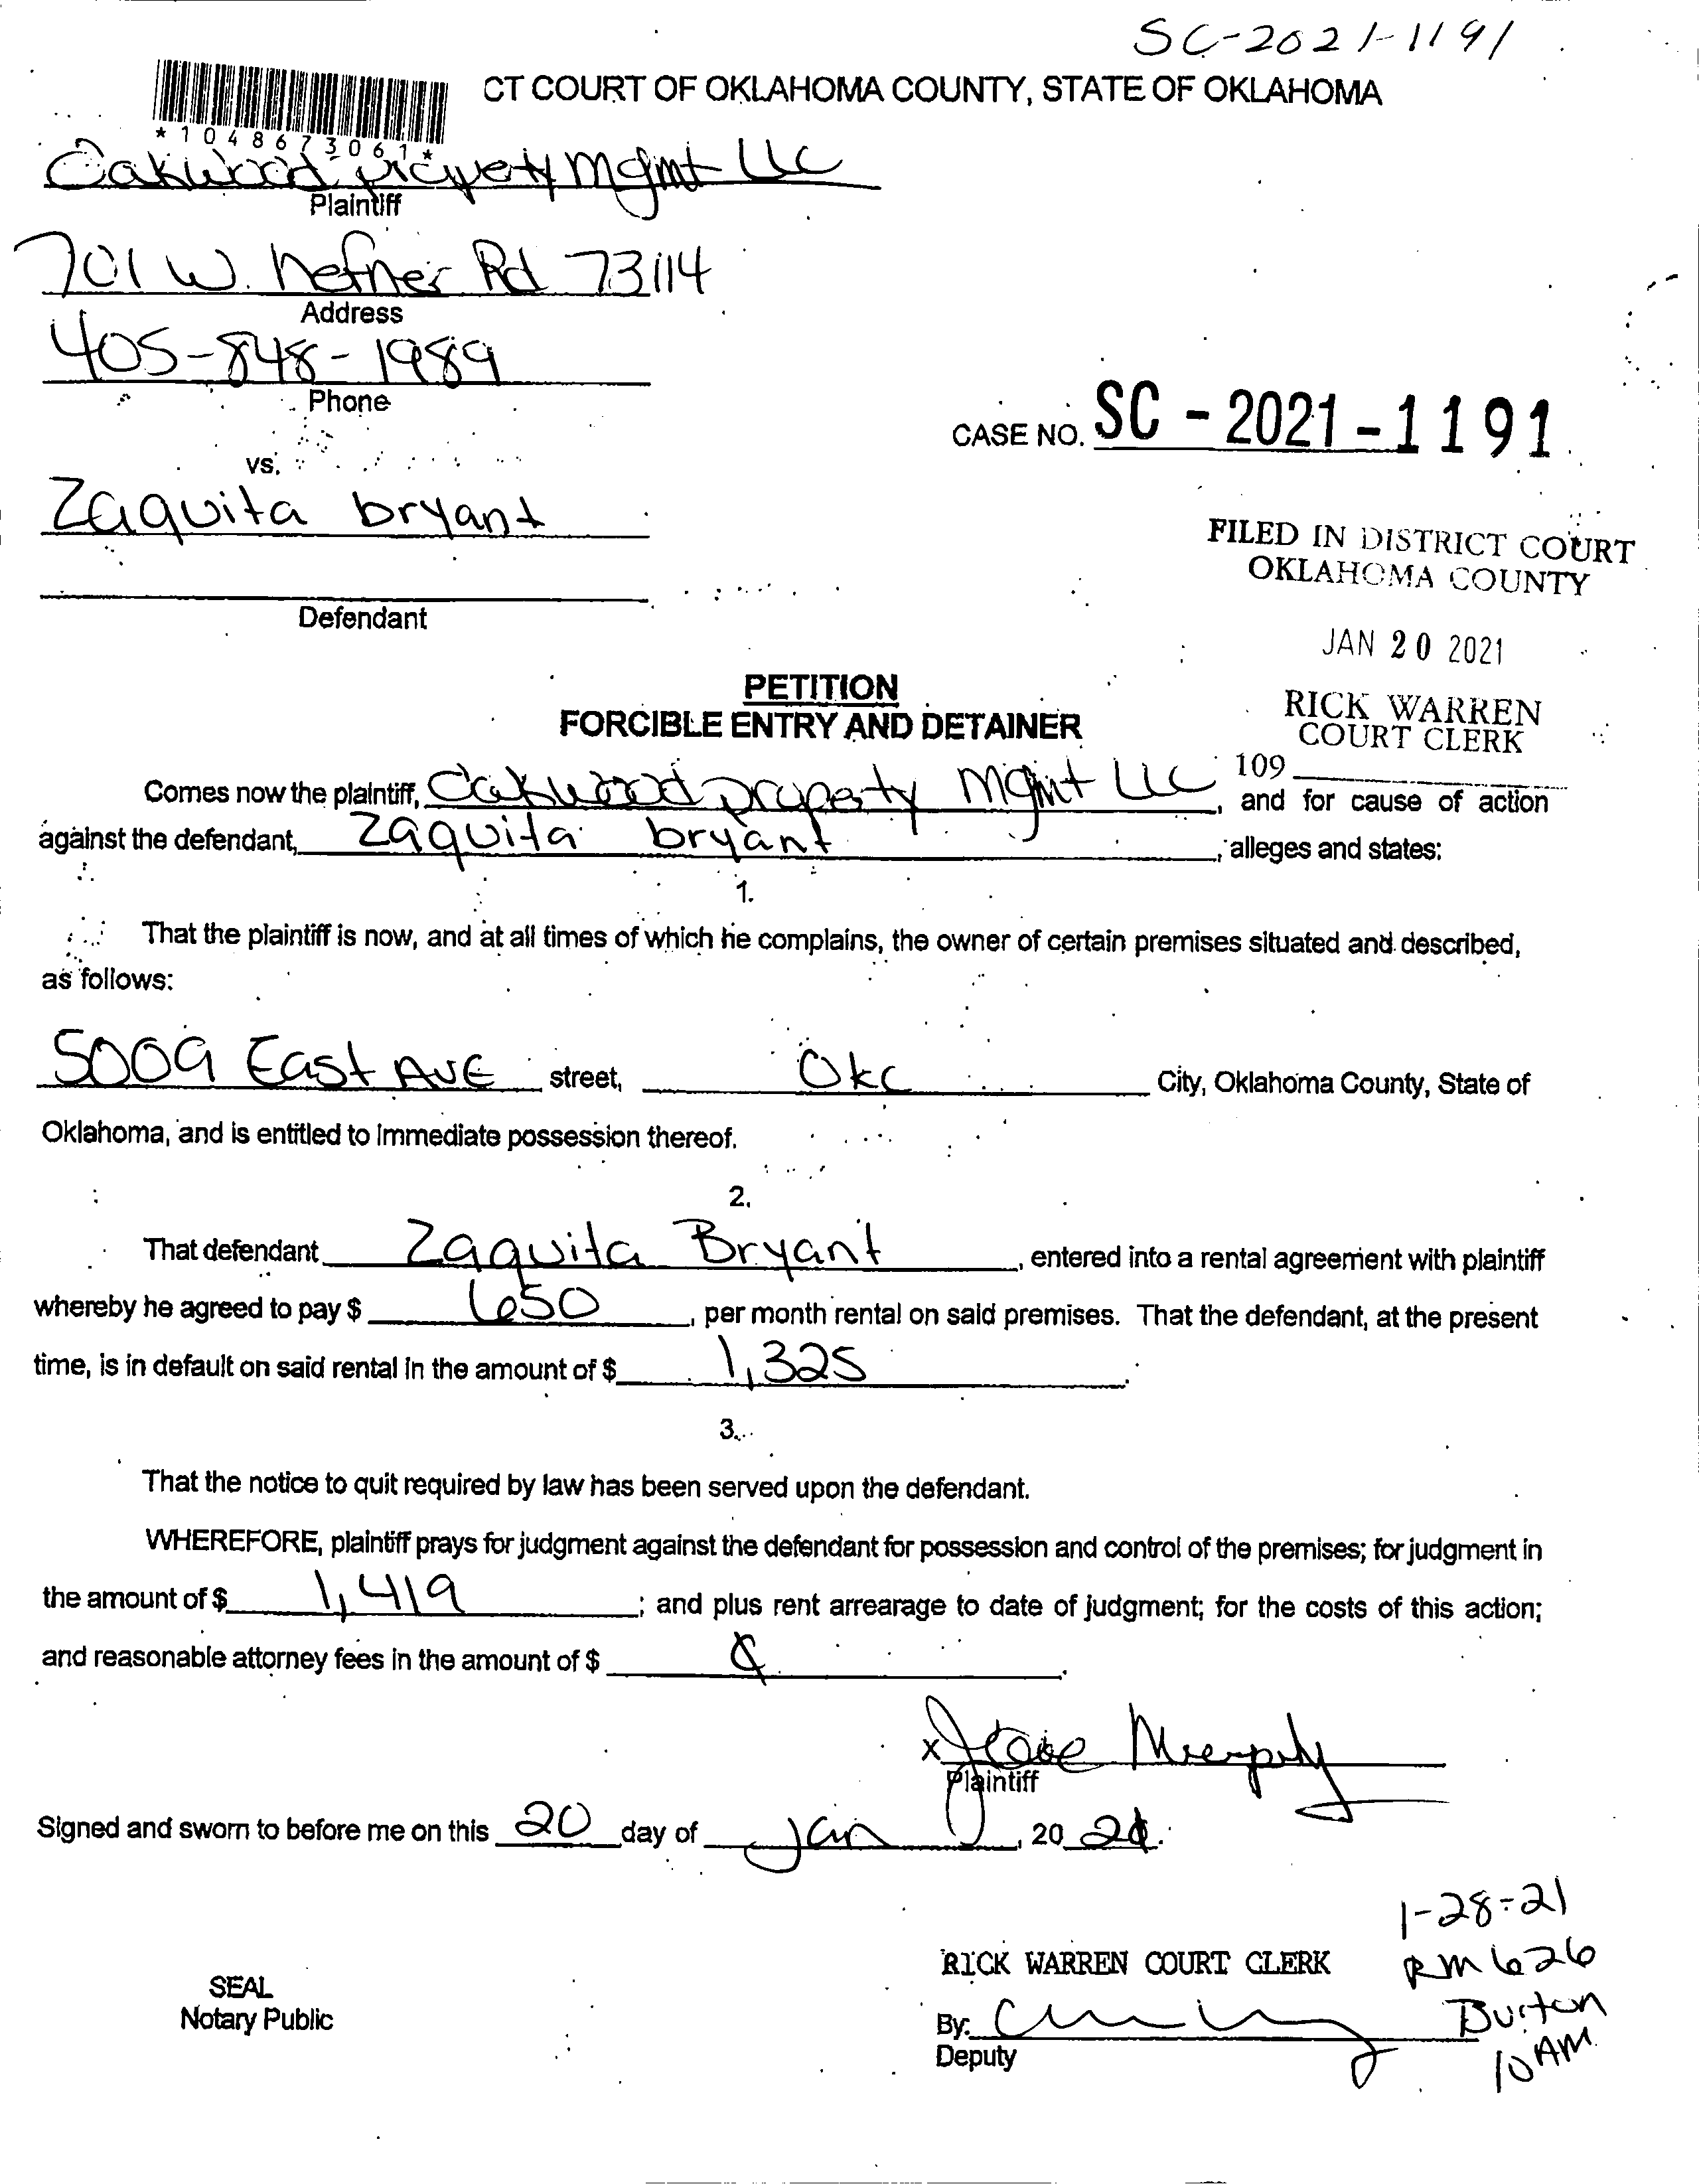 SC-2021-1191
CT COURT OF OKLAHOMA COUNTY, STATE OF OKLAHOMA
*1048673061*
Oakwood property Mgmt LLC
Plaintiff
701 W. hefner Rd 73114
Address
405-848-1989
Phone
CASE NO. SC-2021-1191
vs.
Zaquita bryant
FILED IN DISTRICT COURT
OKLAHOMA COUNTY
Defendant
JAN 20 2021
PETITION
RICK WARREN
FORCIBLE ENTRY AND DETAINER
COURT CLERK
109
Comes now the plaintiff, Oakwood property Mgmt LLC, and for cause of action
against the defendant, Zaquita bryant, alleges and states:
1.
That the plaintiff is now, and at all times of which he complains, the owner of certain premises situated and described,
as follows:
5009 East AVE street, Okc City, Oklahoma County, State of
Oklahoma, and is entitled to immediate possession thereof.
2.
That defendant Zaquita Bryant, entered into a rental agreement with plaintiff
whereby he agreed to pay $ 650, per month rental on said premises. That the defendant, at the present
time, is in default on said rental in the amount of $ 1,325.
3.
That the notice to quit required by law has been served upon the defendant.
WHEREFORE, plaintiff prays for judgment against the defendant for possession and control of the premises; for judgment in
the amount of $ 1,419; and plus rent arrearage to date of judgment; for the costs of this action;
and reasonable attorney fees in the amount of $
x Murphy
Plaintiff
Signed and sworn to before me on this 20 day of Jan, 20 21.
1-28-21
RICK WARREN COURT CLERK
RM 626
SEAL
Notary Public
Burton
By:
10 AM
Deputy